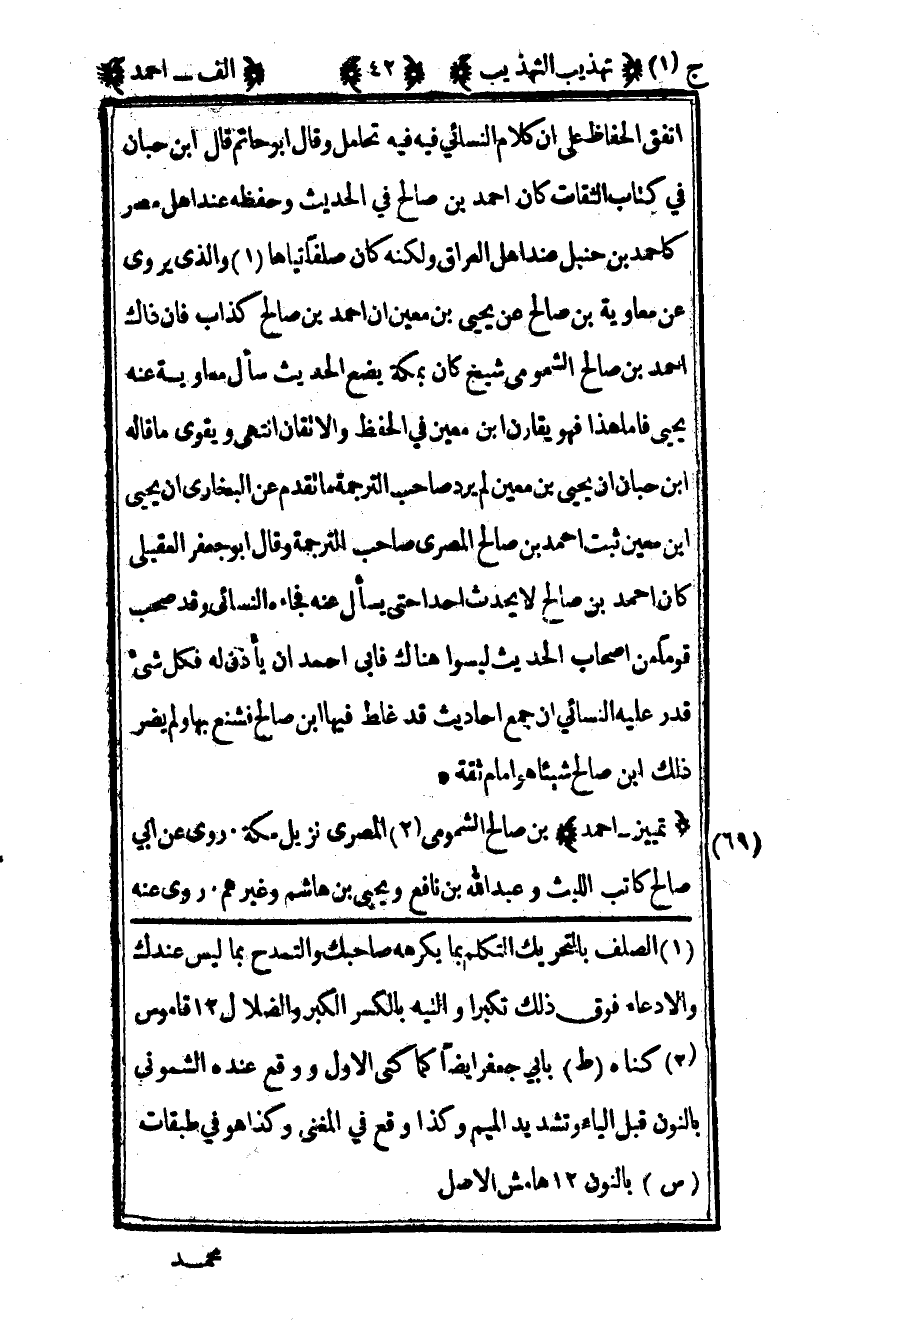 ج (١) ﴿ تهذيب التهذيب ﴾ ﴿ ٤٢ ﴾ ﴿ الف ـ احمد ﴾
اتفق الحفاظ على ان كلام النسائي فيه فيه تحامل وقال ابو حاتم قال ابن حبان
في كتاب الثقات كان احمد بن صالح في الحديث وحفظه عند اهل مصر
كاحمد بن حنبل عند اهل العراق ولكنه كان صلفا تياها (١) والذى يروى
عن معاوية بن صالح عن يحيى بن معين ان احمد بن صالح كذاب فان ذاك
احمد بن صالح الشمومى شيخ كان بمكة يضع الحديث سأل معاوية عنه
يحيى فاما هذا فهو يقارن ابن معين في الحفظ والاتقان انتهى ويقوى ماقاله
ابن حبان ان يحيى بن معين لم يرد صاحب الترجمة ماتقدم عن البخارى ان يحيى
ابن معين ثبت احمد بن صالح المصرى صاحب الترجمة وقال ابو جعفر العقيلى
كان احمد بن صالح لا يحدث احدا حتى يسأل عنه فجاءه النسائى وقد صحب
قوماً من اصحاب الحديث ليسوا هناك فابى احمد ان يأذن له فكل شئ
قدر عليه النسائي ان جمع احاديث قد غلط فيها ابن صالح فشنع بها ولم يضر
ذلك ابن صالح شيئاً هو امام ثقة ٠
﴿ تمييز ـ احمد ﴾ بن صالح الشمومى (٢) المصرى نزيل مكة ٠ روى عن ابي (٦٩)
صالح كاتب الليث و عبد الله بن نافع و يحيى بن هاشم وغيرهم ٠ روى عنه
(١) الصلف بالتحريك التكلم بما يكرهه صاحبك والتمدح بما ليس عندك
والادعاء فوق ذلك تكبرا و التيه بالكسر الكبر والضلال ١٢ قاموس
(٢) كناه (ط) بابي جعفر ايضاً كما كنى الاول و وقع عنده الشموني
بالنون قبل الياء وتشديد الميم وكذا وقع في المغنى وكذا هو في طبقات
(س) بالنون ١٢ هامش الاصل
محمد